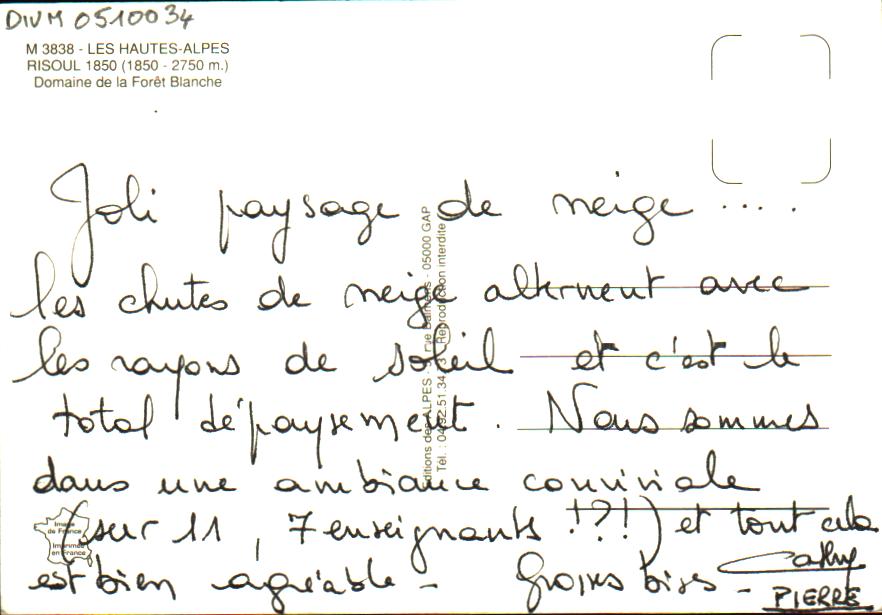 DIVM 0510034
M 3838 - LES HAUTES-ALPES
RISOUL 1850 (1850 - 2750 m.)
Domaine de la Forêt Blanche
Joli paysage de neige .....
les chutes de neige alternent avec
les rayons de soleil et c'est le
total dépaysement. Nous sommes
dans une ambiance conviviale
(sur 11, 7 enseignants !?!) et tout cela
est bien agréable - Grosses bises -
Cathy
PIERRE
Editions des ALPES - rue - 05000 GAP
Tél. : Reproduction interdite
Image
de France
Imprimée
en France